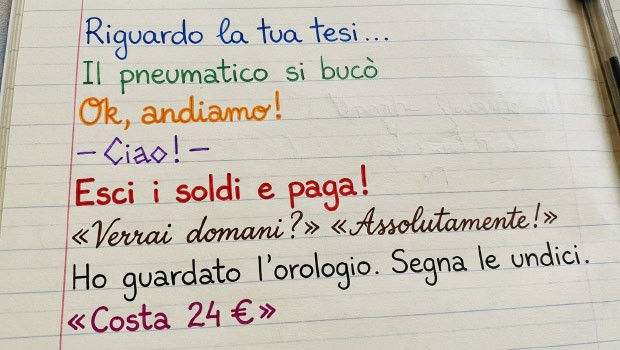 Riguardo la tua tesi...
Il pneumatico si bucò
Ok, andiamo!
– Ciao! –
Esci i soldi e paga!
«Verrai domani?» «Assolutamente!»
Ho guardato l'orologio. Segna le undici.
«Costa 24 €»